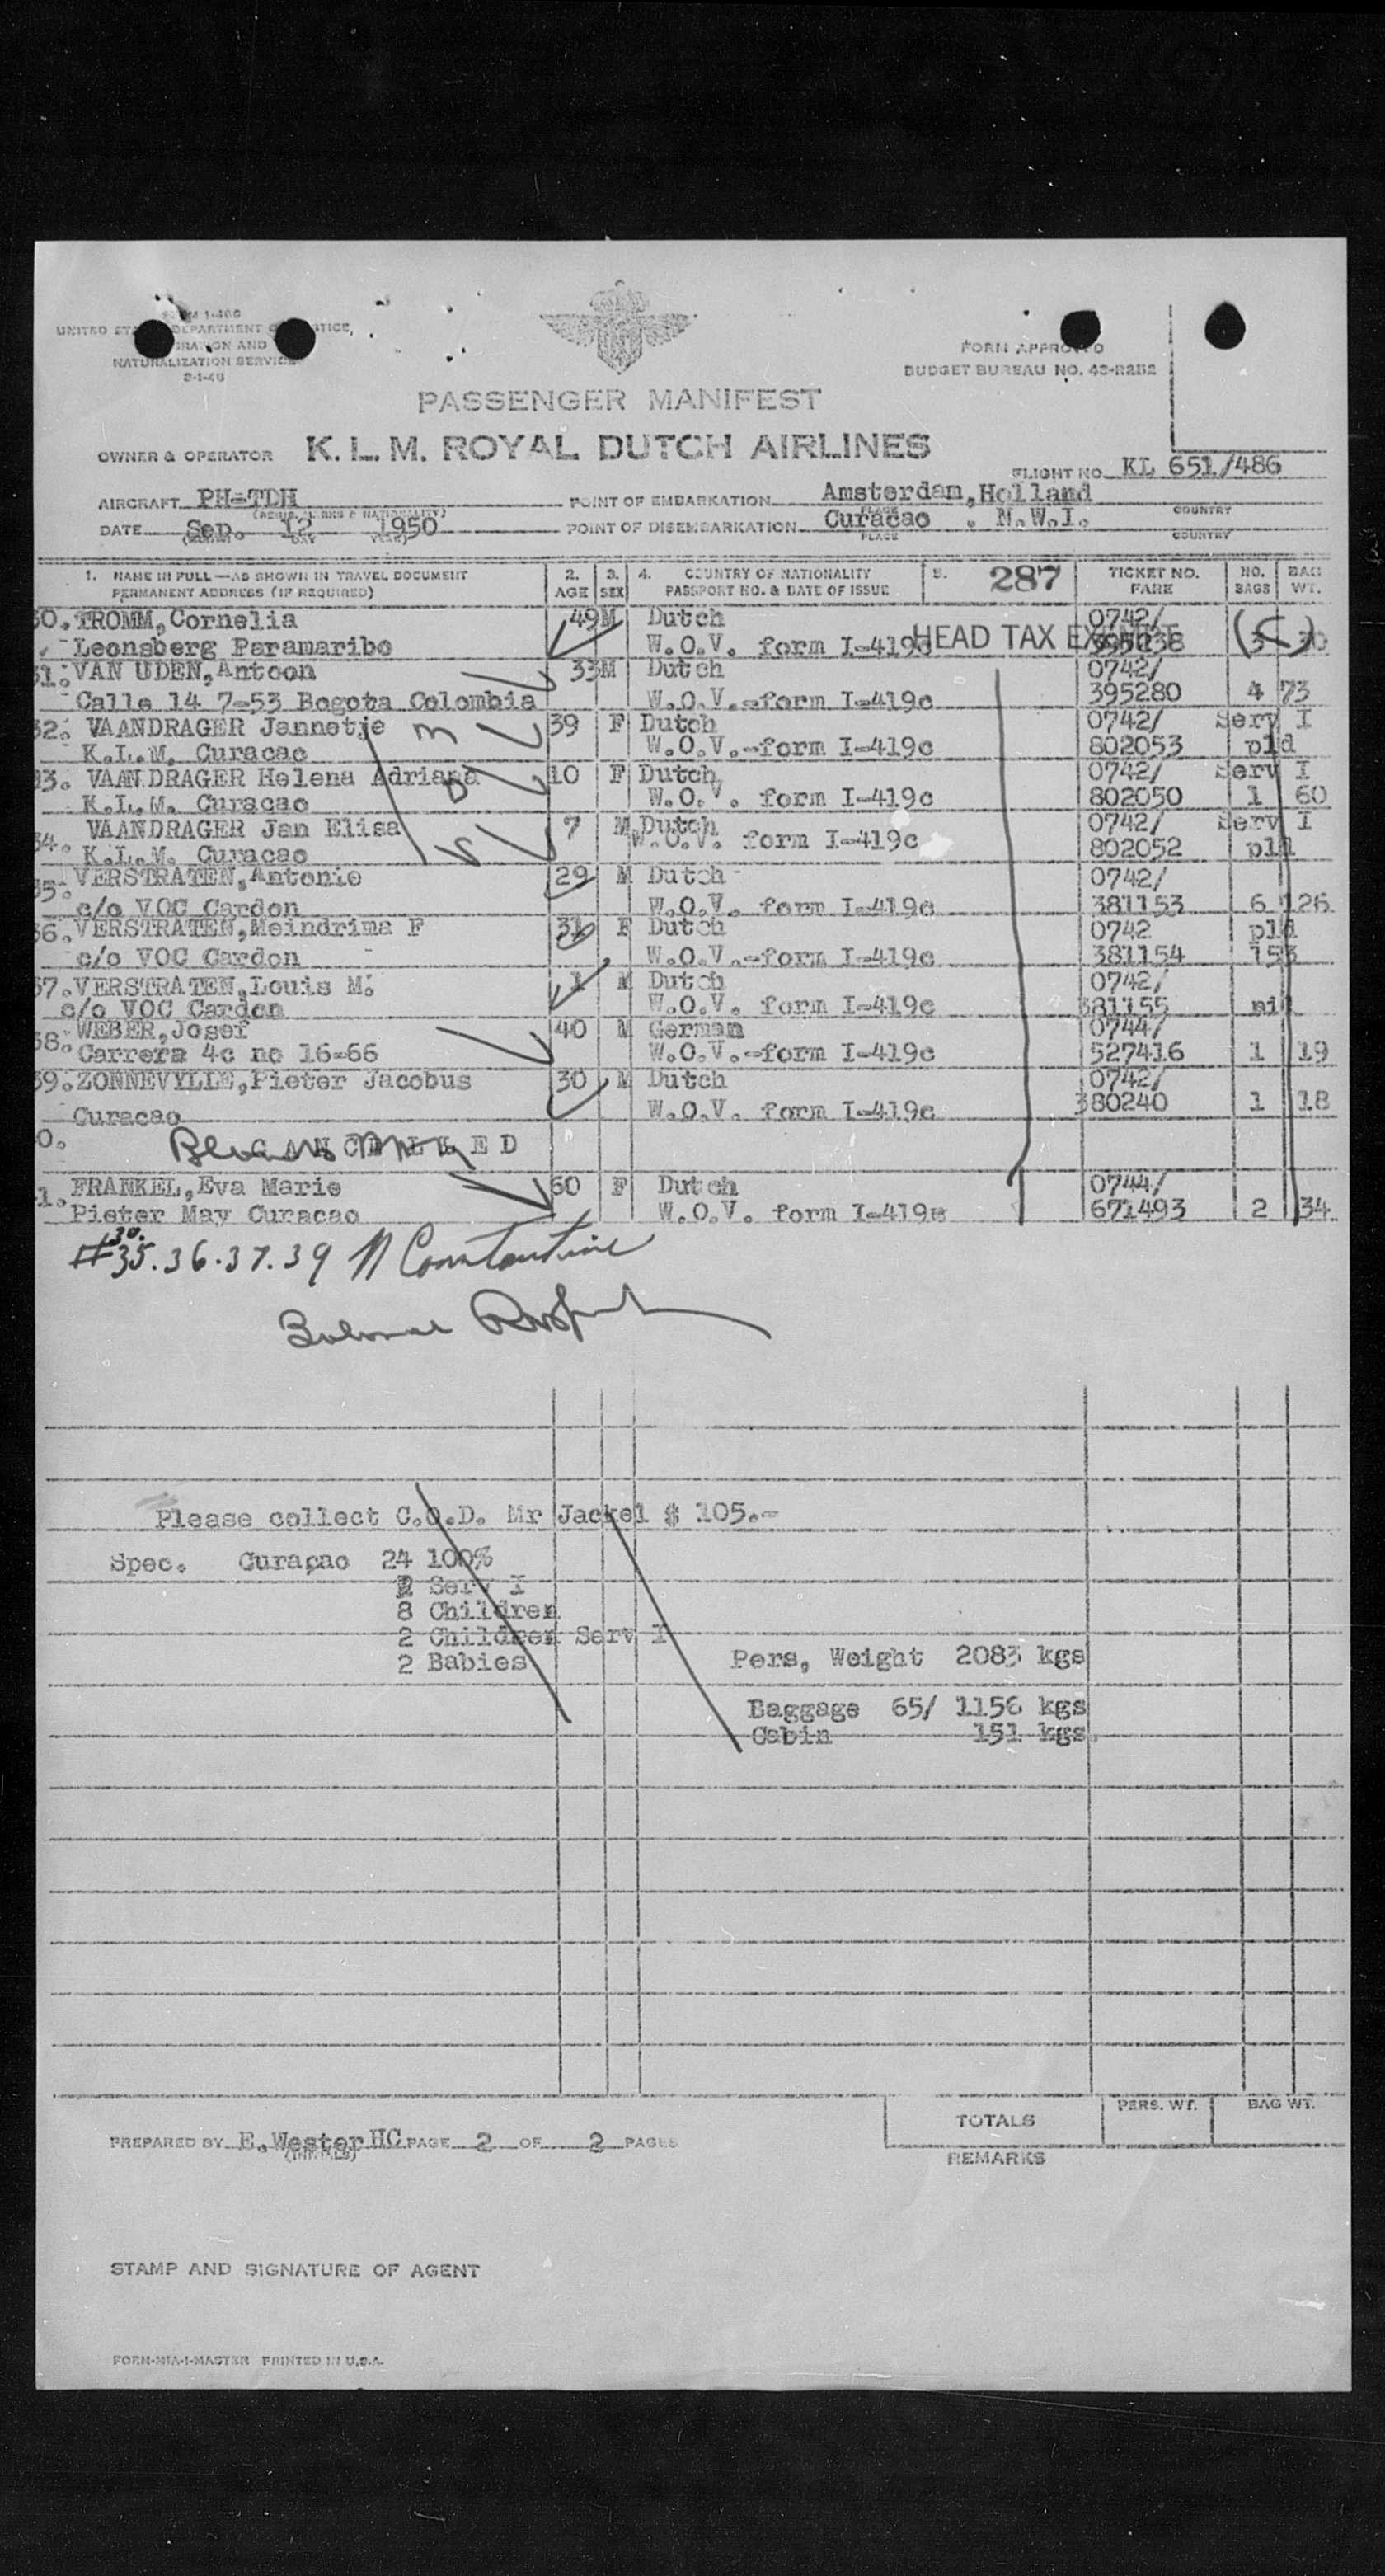 FORM I-466
UNITED DEPARTMENT
AND
NATURALIZATION SERVICE
FORM APPROVED
BUDGET BUREAU NO. 43-R252
PASSENGER MANIFEST
OWNER & OPERATOR K. L. M. ROYAL DUTCH AIRLINES
FLIGHT NO. KL 651/486
AIRCRAFT PH-TDH POINT OF EMBARKATION Amsterdam, Holland
PLACE COUNTRY
DATE Sep. 12 1950 POINT OF DISEMBARKATION Curacao . N.W.I.
DAY PLACE COUNTRY
1. NAME IN FULL—AS SHOWN IN TRAVEL DOCUMENT 2. 3. 4. COUNTRY OF NATIONALITY 5. 287 TICKET NO. NO. BAG
PERMANENT ADDRESS (IF REQUIRED) AGE SEX PASSPORT NO. & DATE OF ISSUE FARE BAGS WT.
30. TROMM, Cornelia 49 M Dutch 0742/
Leonsberg Paramaribo W.O.V. form I-419c HEAD TAX EXEMPT 3 30
31. VAN UDEN, Antoon 33 M Dutch 0742/
Calle 14 7-53 Bogota Colombia W.O.V.-form I-419c 395280 4 73
32. VAANDRAGER Jannetje 39 F Dutch 0742/ Serv I
K.L.M. Curacao W.O.V.-form I-419c 802053 pld
33. VAANDRAGER Helena Adriana 10 F Dutch 0742/ Serv I
K.L.M. Curacao W.O.V. form I-419c 802050 1 60
34. VAANDRAGER Jan Elisa 7 M Dutch 0742/ Serv I
K.L.M. Curacao W.O.V. form I-419c 802052 pld
35. VERSTRATEN, Antonie 29 M Dutch 0742/
c/o VOC Cardon W.O.V. form I-419c 381153 6 126
36. VERSTRATEN, Meindrina F 31 F Dutch 0742 pld
c/o VOC Cardon W.O.V.-form I-419c 381154 153
37. VERSTRATEN, Louis M. 1 M Dutch 0742/
c/o VOC Cardon W.O.V. form I-419c 381155 nil
38. WEBER, Josef 40 M German 0744/
Carrera 4c no 16-66 W.O.V.-form I-419c 527416 1 19
39. ZONNEVYLLE, Pieter Jacobus 30 M Dutch 0742/
Curacao W.O.V. form I-419c 380240 1 18
40. CANCELLED
41. FRANKEL, Eva Marie 60 F Dutch 0744/
Pieter May Curacao W.O.V. form I-419c 671493 2 34
30.
#35.36.37.39 N Constantine
Please collect C.O.D. Mr Jackel $ 105.-
Spec. Curaçao 24 100%
2 Serv I
8 Children
2 Children Serv I
2 Babies Pers, Weight 2083 kgs
Baggage 65/ 1156 kgs
Cabin 151 kgs.
TOTALS PERS. WT. BAG WT.
PREPARED BY E. Wester HC PAGE 2 OF 2 PAGES
(INITIALS) REMARKS
STAMP AND SIGNATURE OF AGENT
FORM-MIA-I-MASTER PRINTED IN U.S.A.